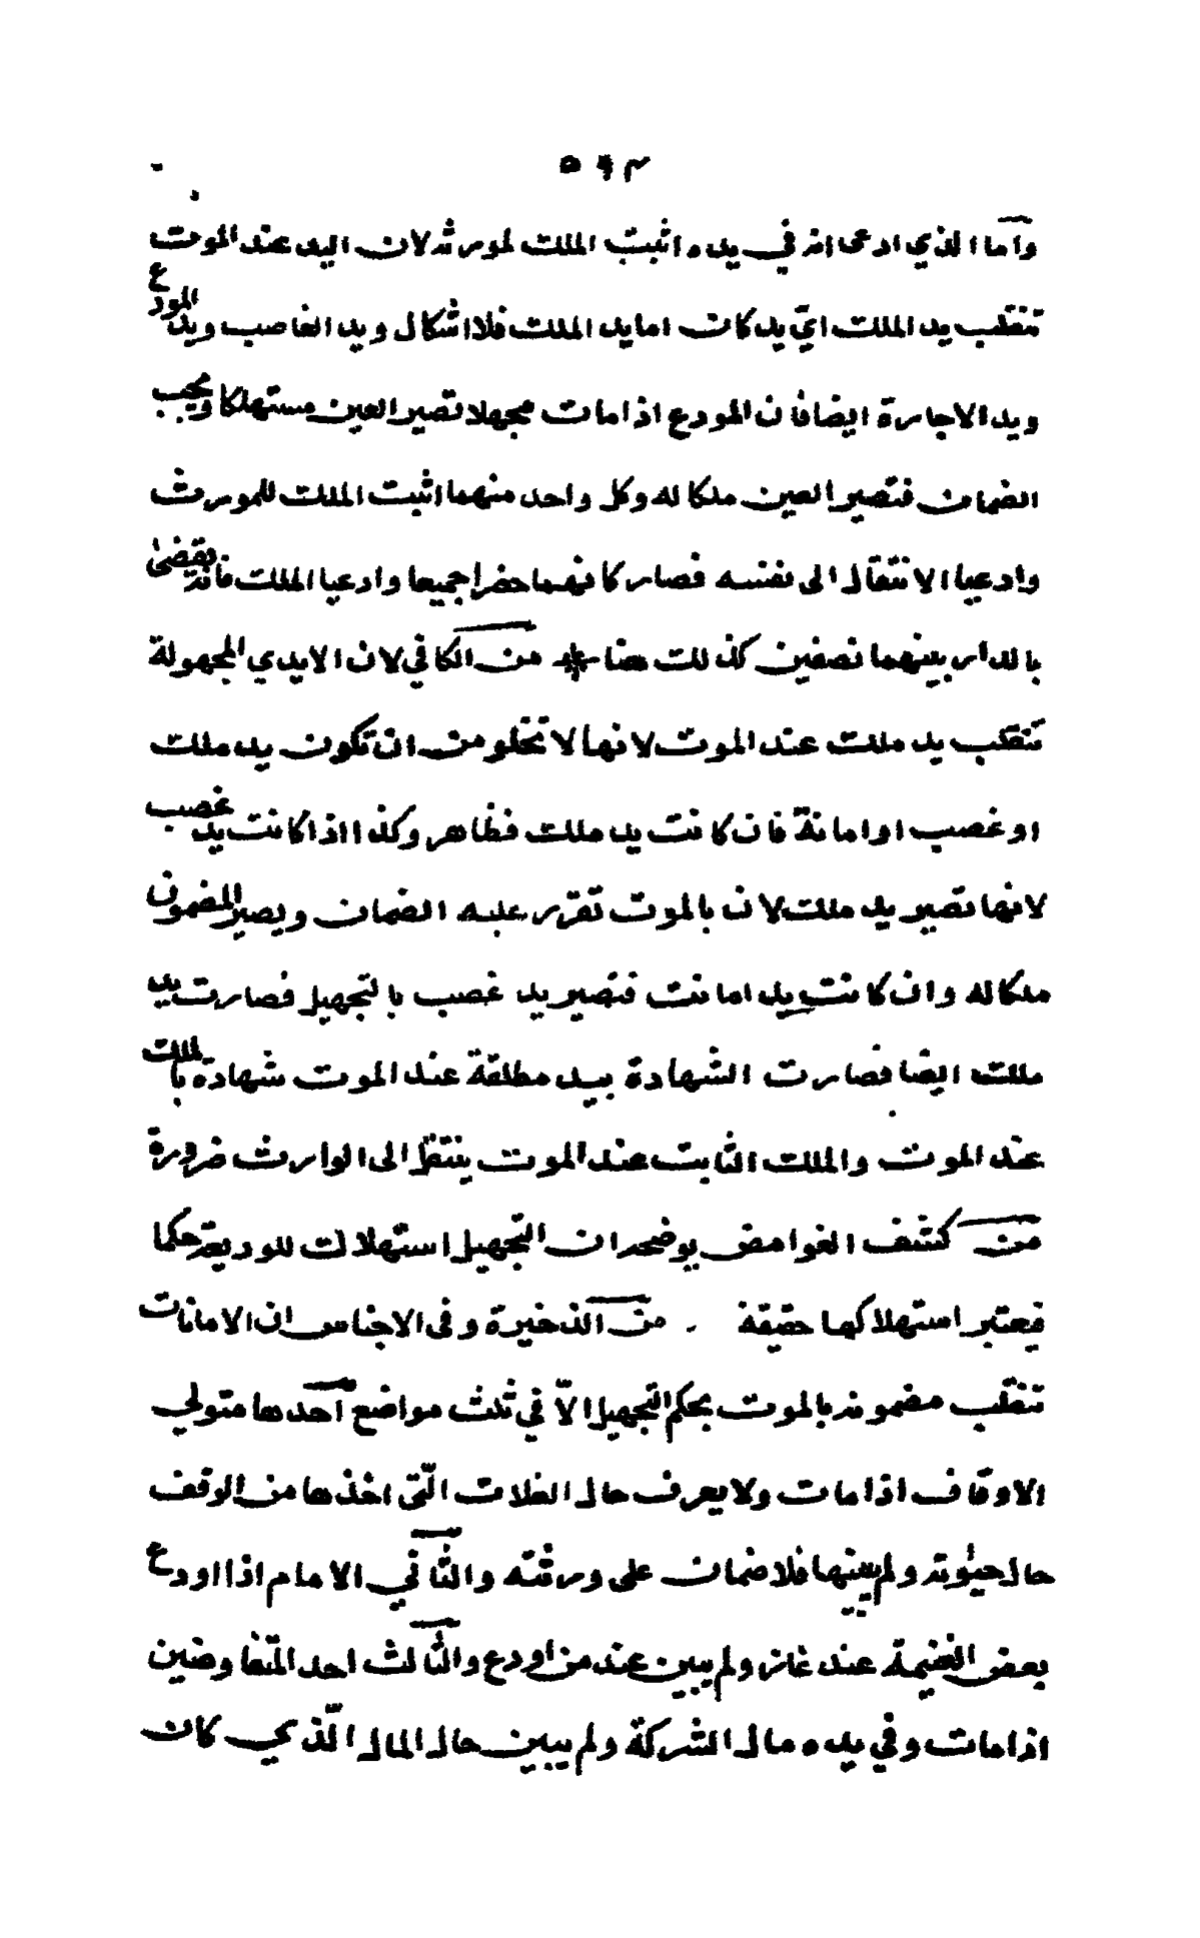 ٥٩٣
وأما الذي ادعى انه في يده اثبت الملك لمورثه لان اليد عند الموت
تنقلب يد الملك ايّ يد كان اما يد الملك فلا اشكال ويد الغاصب ويد المودع
ويد الاجارة ايضا فان المودع اذا مات مجهلا تصير العين مستهلكا ويجب
الضمان فتصير العين ملكا له وكل واحد منهما اثبت الملك للمورث
وادعيا الانتقال الى نفسه فصار كانهما حضرا جميعا وادعيا الملك فانه يقضى
بالدار بينهما نصفين كذلك هنا * من الكافي لان الايدي المجهولة
تنقلب يد ملك عند الموت لانها لا تخلو من ان تكون يد ملك
او غصب او امانة فان كانت يد ملك فظاهر وكذا اذا كانت يد غصب
لانها تصير يد ملك لان بالموت تقرر عليه الضمان ويصير المضمون
ملكا له وان كانت يد امانت فتصير يد غصب بالتجهيل فصارت يد
ملك ايضا فصارت الشهادة بيد مطلقة عند الموت شهادة بالملك
عند الموت والملك الثابت عند الموت ينتقل الى الوارث ضرورة
من كشف الغوامض يوضحه ان التجهيل استهلاك للوديعة حكما
فيعتبر استهلاكها حقيقة . من الذخيرة وفى الاجناس ان الامانات
تنقلب مضمونة بالموت بحكم التجهيل الاّ في ثلث مواضع أحدها متولي
الاوقاف اذا مات ولا يعرف حال الغلات الّتى اخذها من الوقف
حال حيوته ولم يبينها فلا ضمان على ورثته والثّاني الامام اذا اودع
بعض الغنيمة عند غاز ولم يبين عند من اودع والثّالث احد المتفاوضين
اذا مات وفي يده مال الشركة ولم يبين حال المال الّذي كان